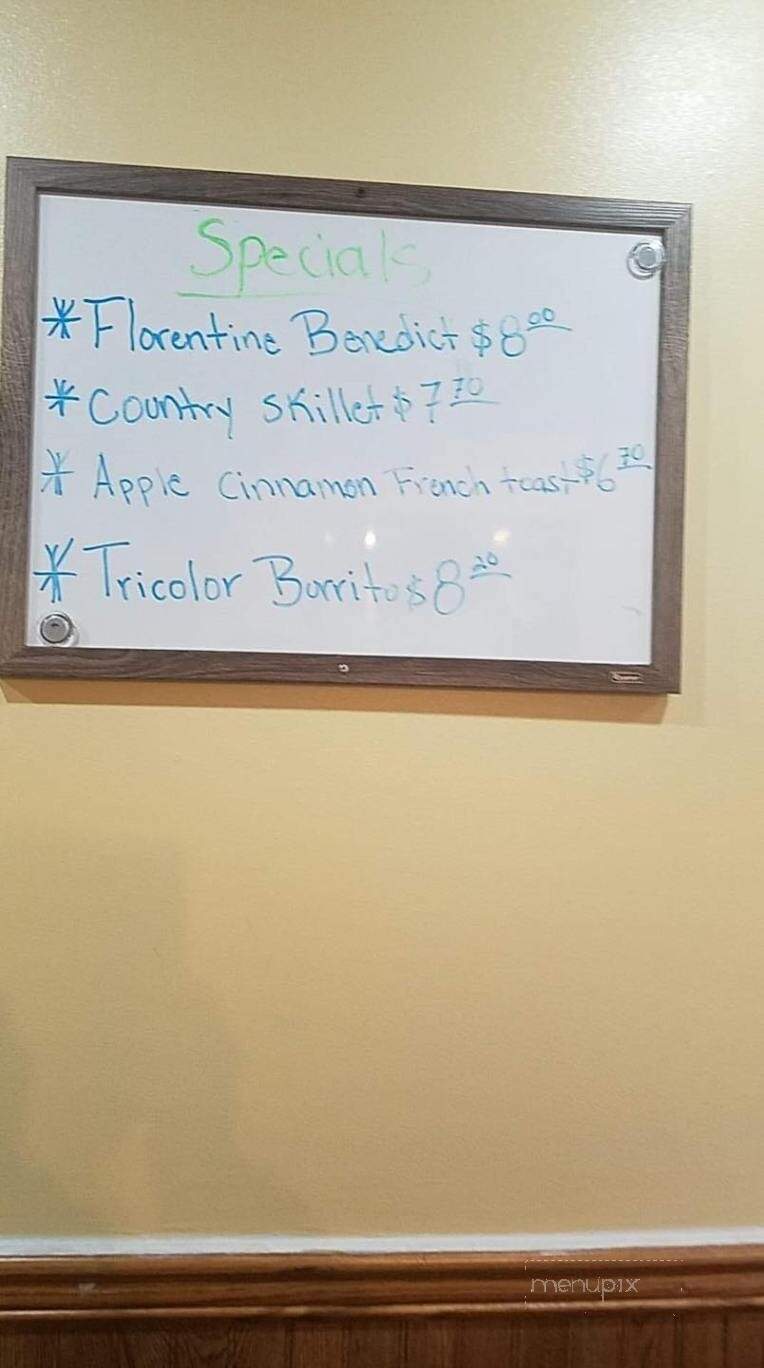 Specials
* Florentine Benedict $8.00
* Country Skillet $7.70
* Apple Cinnamon French toast $6.70
* Tricolor Burrito $8.20
menupix